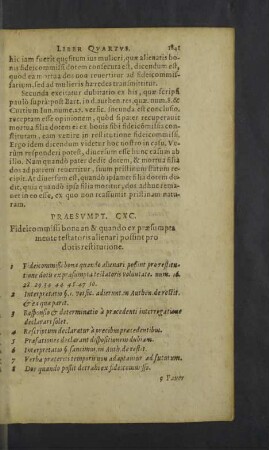 LIBER QUARTVS.
his iam fuerit quęsitum ius mulieri, quæ alienatis bo
nis fidei commissi dotem consecuta est, dicendum est,
quod ea mortua dos non reuertitur ad fideicommis-
sarium, sed ad mulieris hæredes transmittitur.
Secunda excitatur dubitatio ex his, quæ scripsi
paulò suprà post Bart. in d. authen. res, quæ. num. 8. &
Curtium Iun. nume. 20. siquidem ea est conclusio,
receptam esse opinionem, quòd si pater recuperauit
mortua filia dotem ei ex bonis sibi fideicommissis con-
stitutam, eam venire in restitutionem fideicommissi,
Ergo idem dicendum videtur hoc nostro in casu. Ve-
rùm respondere potest, diuersum esse hunc casum ab
illo. Nam quando pater dedit dotem, & mortua filia
dos ad patrem reuertitur, suam pristinam naturam re-
cipit. At diuersum est, quando ipsamet filia dotem
dedit, quo casu, mortua ipsa muliere, dos adhuc rema-
net in eo esse, ex quo non reassumit pristinam natu-
ram.
PRAESVMPT. CXC.
Fideicommissi bona an & quando ex præsumpta
mente testatoris alienari possint pro
dotis restitutione.
1 Fideicommissi bona quando alienari possint pro restitu-
tione dotis ex præsumpta testatoris voluntate. num.
2 Interpretatio §. 1. versic. adierunt. in Authen. de restit.
& ea quæ parit.
3 Responsio & determinatio à præcedenti interrogatione
declarari solet.
4 Rescriptum declaratur à precibus præcedentibus.
5 Præfationes declarant dispositionem dubiam.
6 Interpretatio § sancimus. in Auth. de restit.
7 Verba præteriti temporis non adaptantur ad futurum.
8 Dos quando possit detrahi ex fideicommisso.
9 Pater